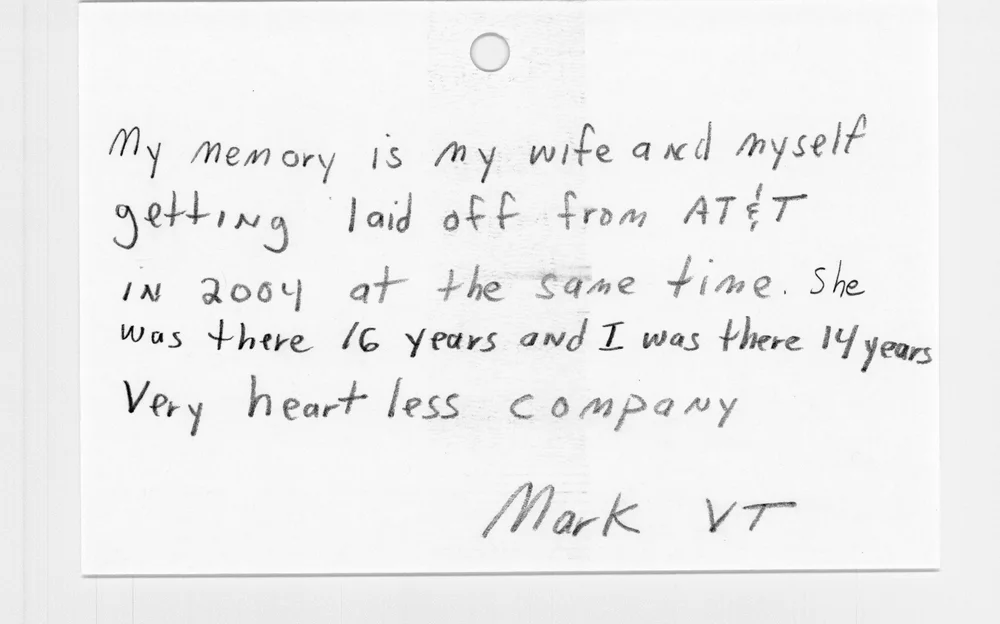 My memory is my wife and myself
getting laid off from AT&T
in 2004 at the same time. She
was there 16 years and I was there 14 years
Very heartless company
Mark VT